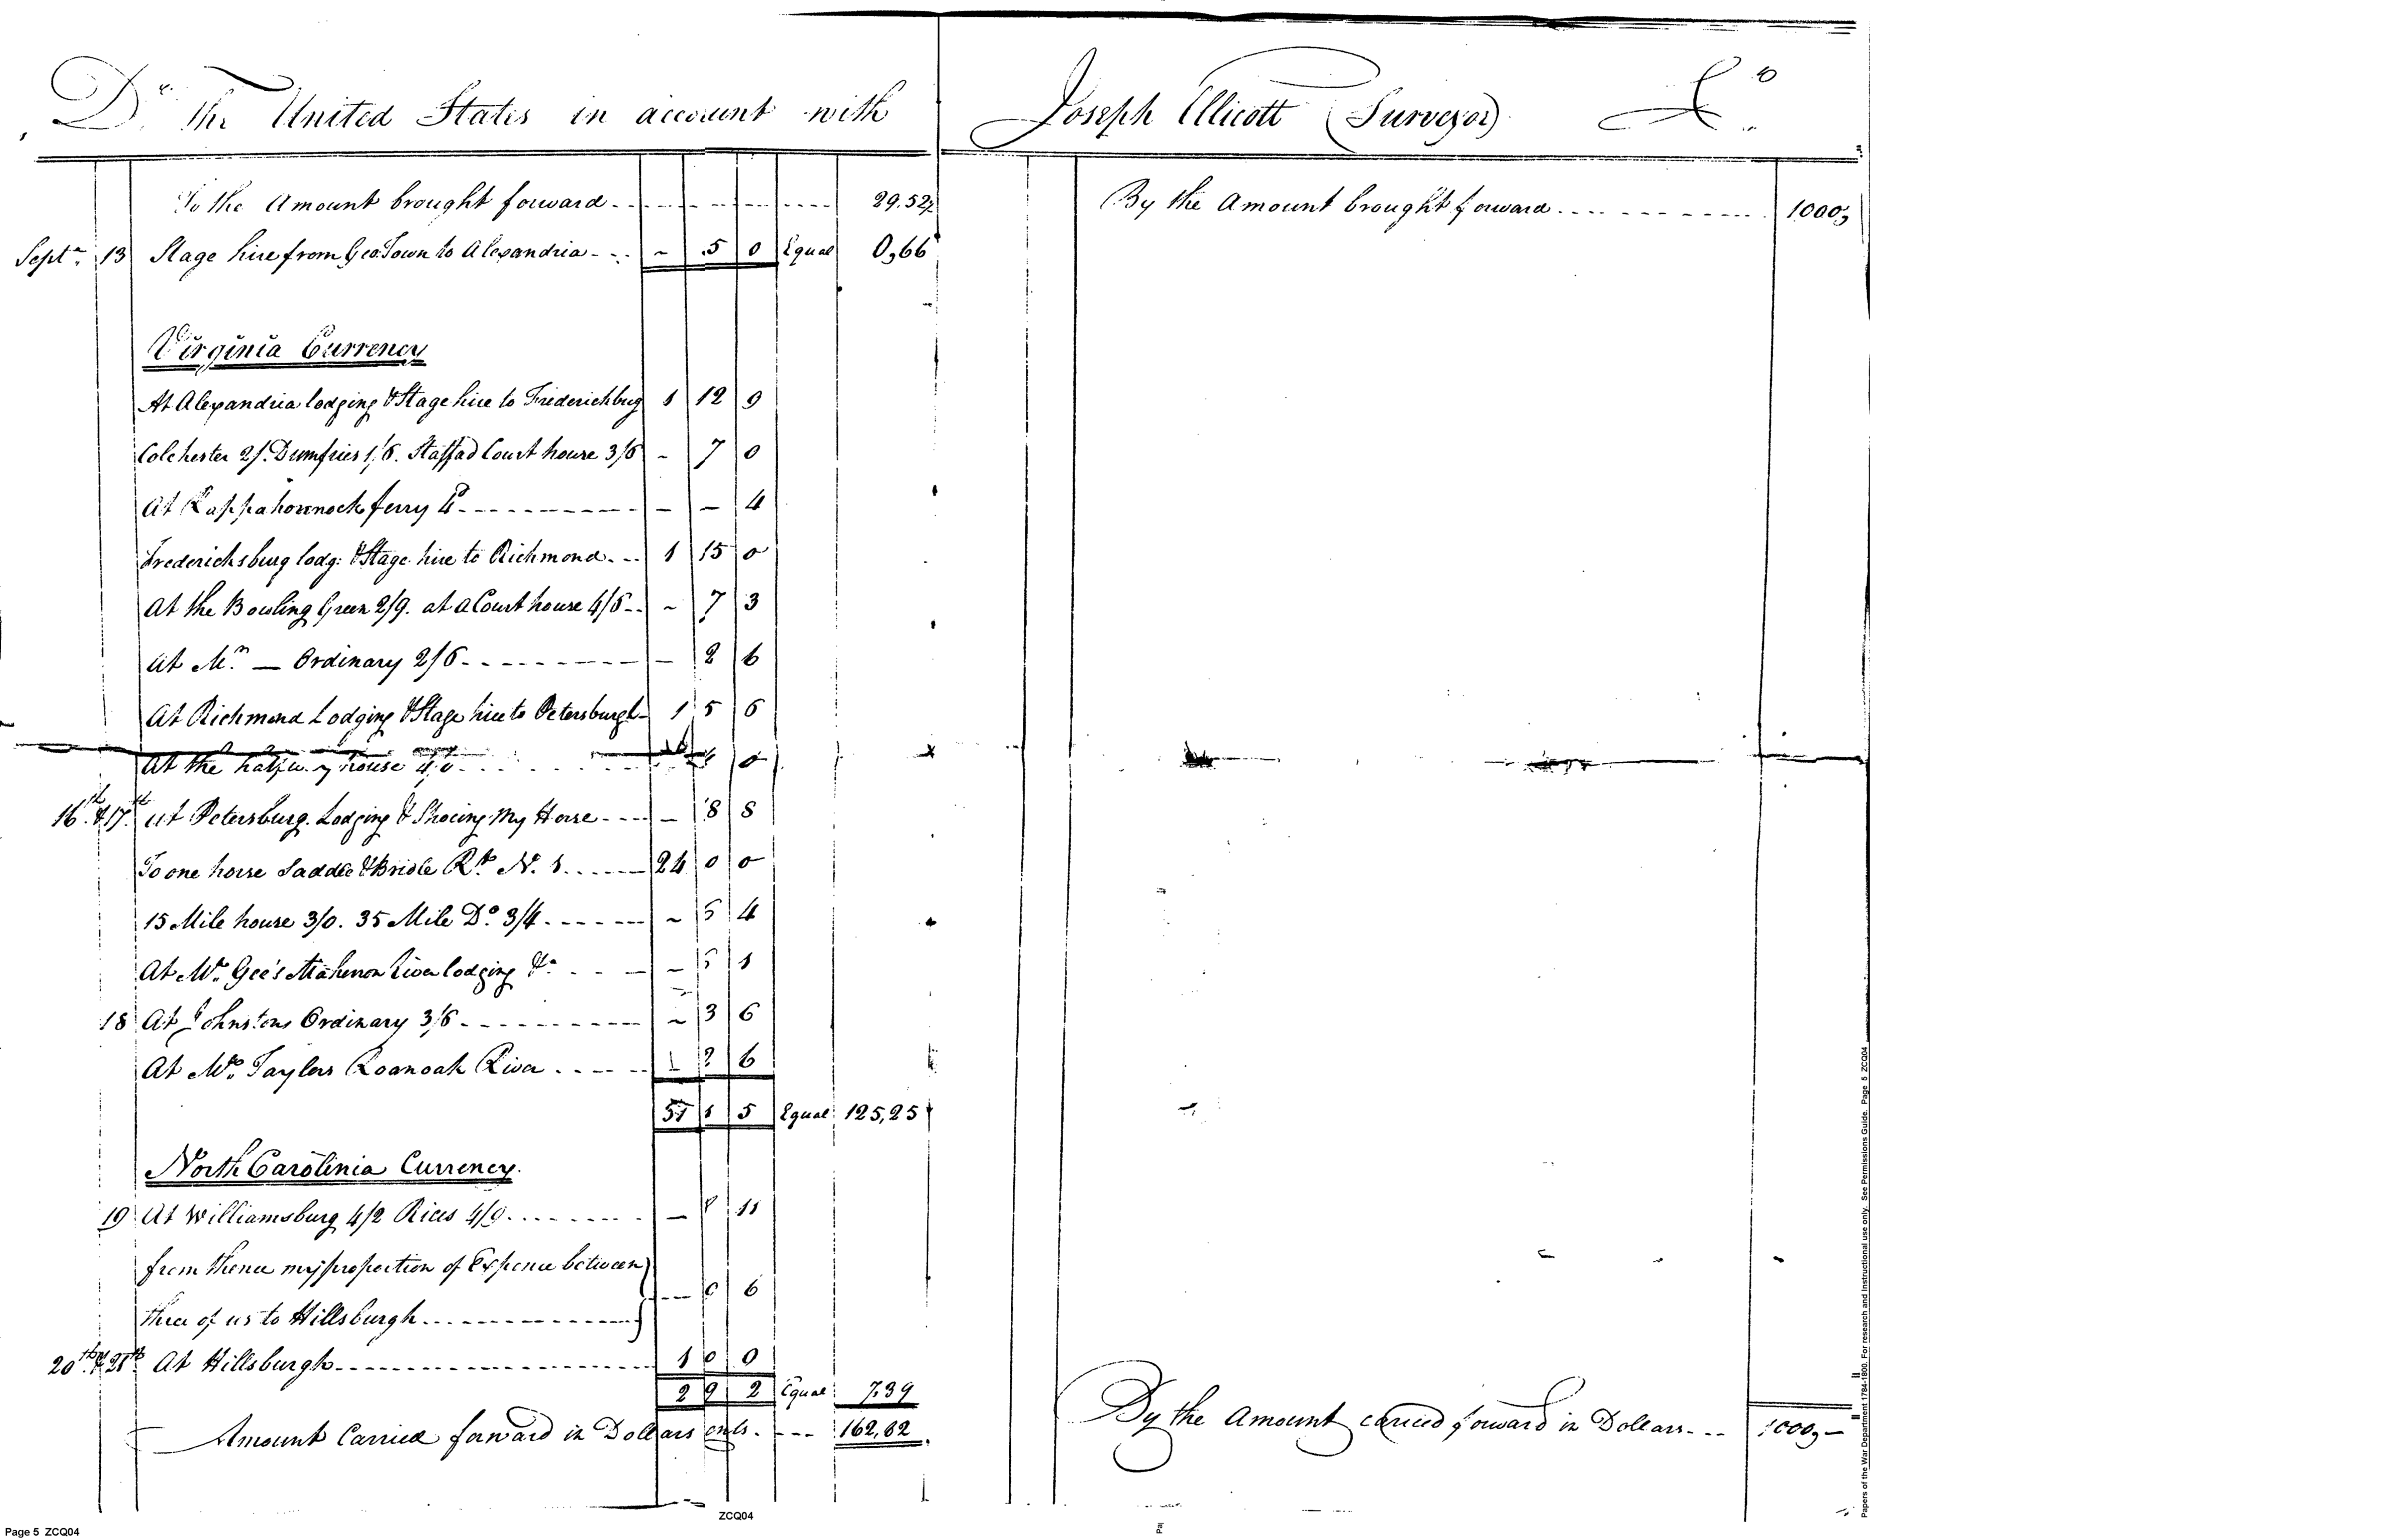 Dr. The United States in account with
To the Amount brought forward 29.52
Septr. 13 Stage hire from Geo Town to Alexandria - 5 0 Equal 0,66
Virginia Currency
At Alexandria lodging & Stage hire to Frederichburg 1 12 9
Colchester 2/. Dumfries 1/6. Staffad Court house 3/6 - 7 0
At Rappahonnock ferry 4d - - 4
Frederichsburg lodg: & Stage hire to Richmond 1 15 0
At the Bowling Green 2/9. at a Court house 4/6 - 7 3
At Mr. — Ordinary 2/6 - 2 6
At Richmond Lodging & Stage hire to Petersburgh 1 5 6
At the halfway house 0
16th & 17th at Petersburg. Lodging & Shoeing My Horse - 8 8
To one horse Saddle & Bridle Rt. N. 1 24 0 0
15 Mile house 3/0. 35 Mile Do. 3/4 - 5 4
At Mr. Gee's River lodging &c - 5 1
18 At Johnstons Ordinary 3/6 - 3 6
At Mr. Taylors Roanoak River 1 2 6
5 5 Equal 125,25
North Carolinia Currency.
19 At Williamsburg 4/2 Rices 4/9 - 8 11
from thence my proportion of Expence between
three of us to Hillsburgh - 6
20th & 21st At Hillsburgh 1 0
2 9 2 Equal 7.39
Amount Carried forward in Dollars cents. 162,82
Joseph Ellicott (Surveyor) Cr.
By the Amount brought forward 1000,
By the Amount carried forward in Dollars 1000,—
Papers of the War Department 1784-1800. For research and Instructional use only. See Permissions Guide. Page 5 ZCQ04
ZCQ04
Page 5 ZCQ04